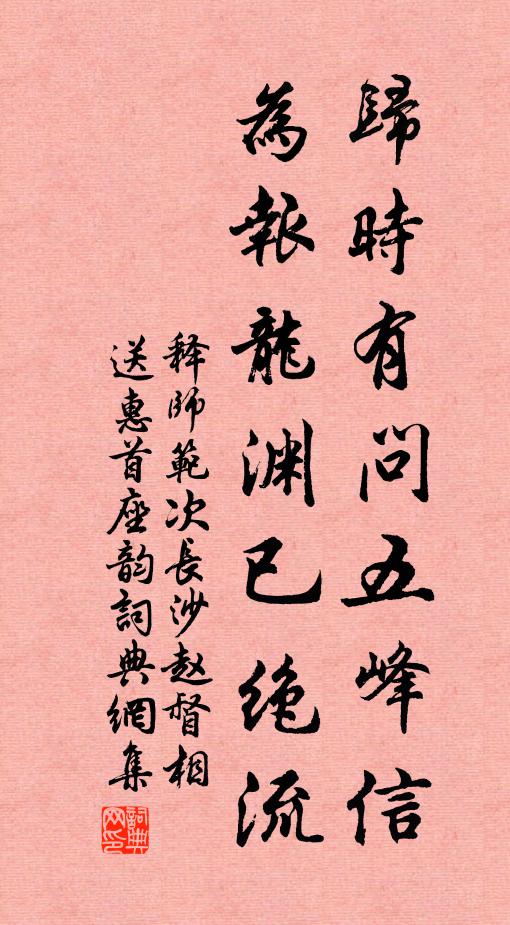 歸時有問五峰信
為報龍淵已絶流
释師範次長沙赵督相
送惠首座韵詞典網集
詞典
网印